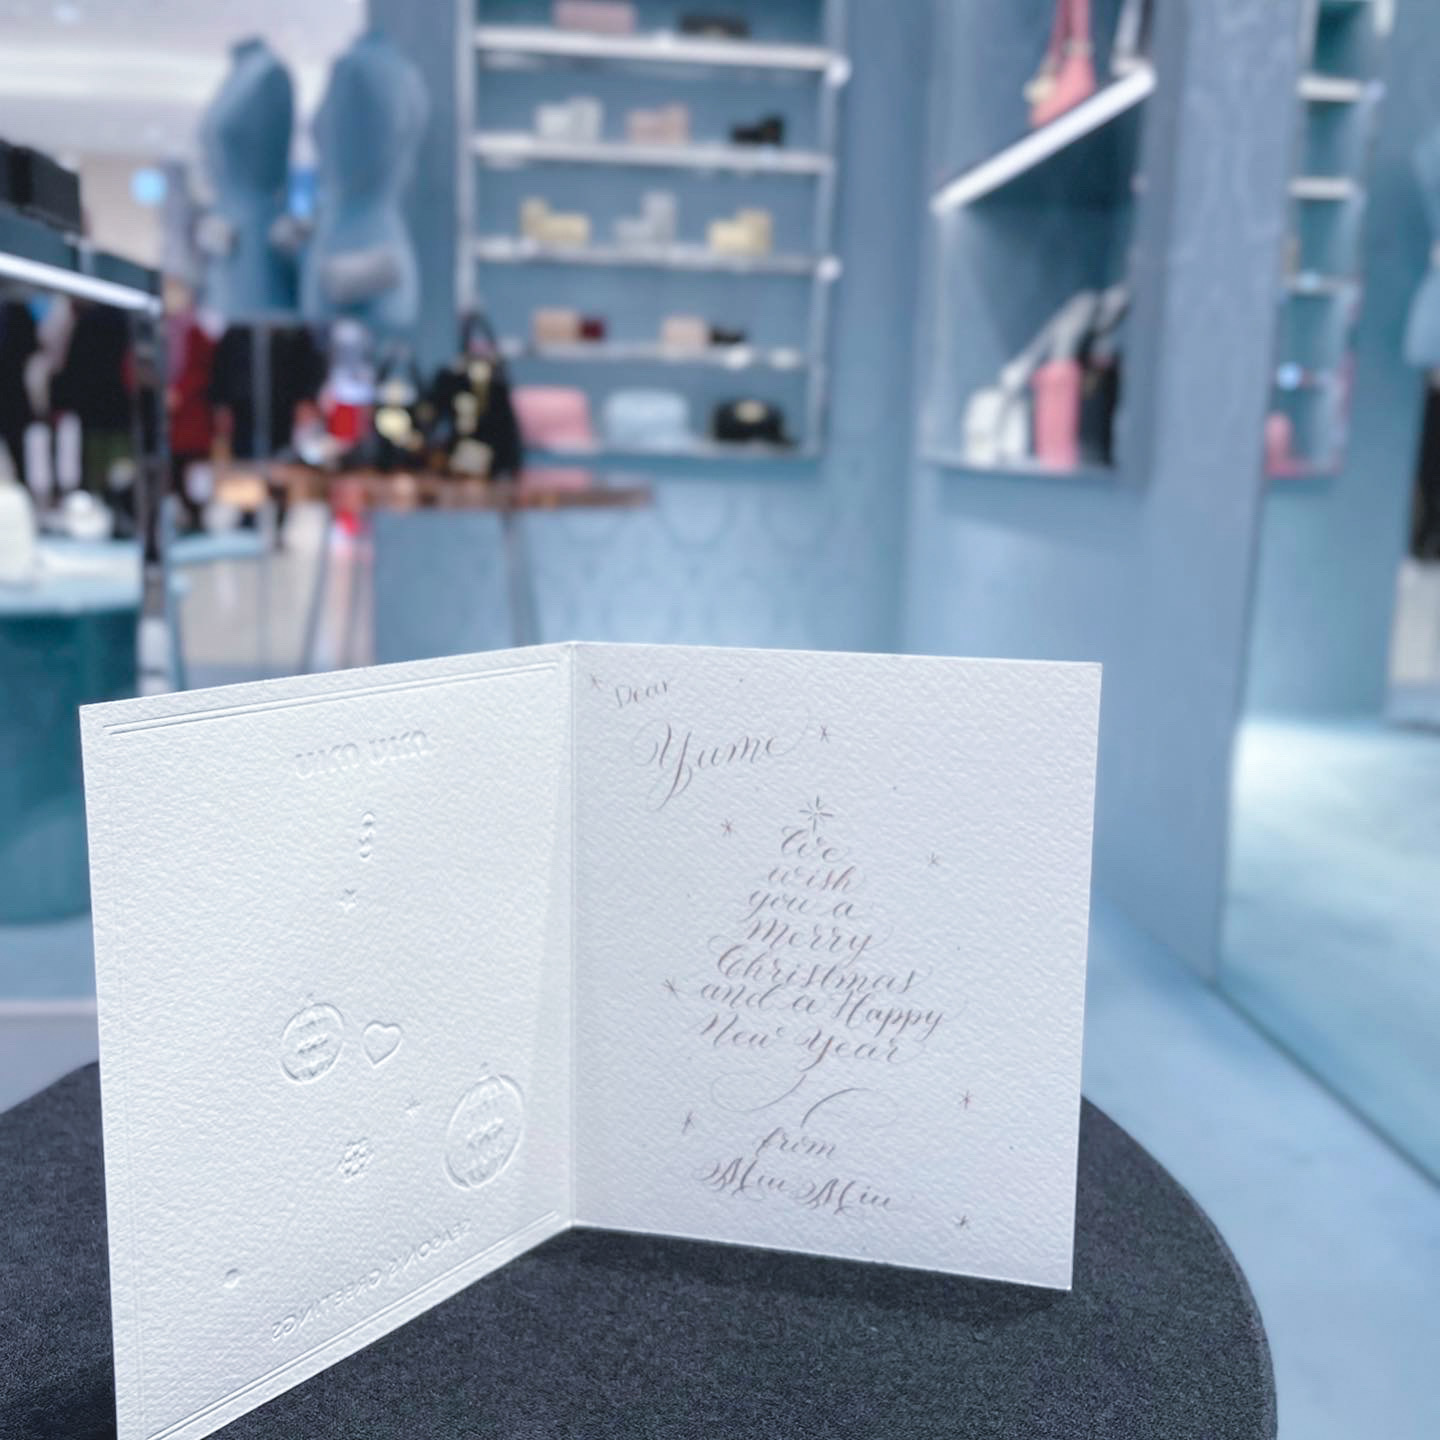 miu miu
SEASON'S GREETINGS
Dear
Yume
We
wish
you a
Merry
Christmas
and a Happy
New Year
from
Miu Miu